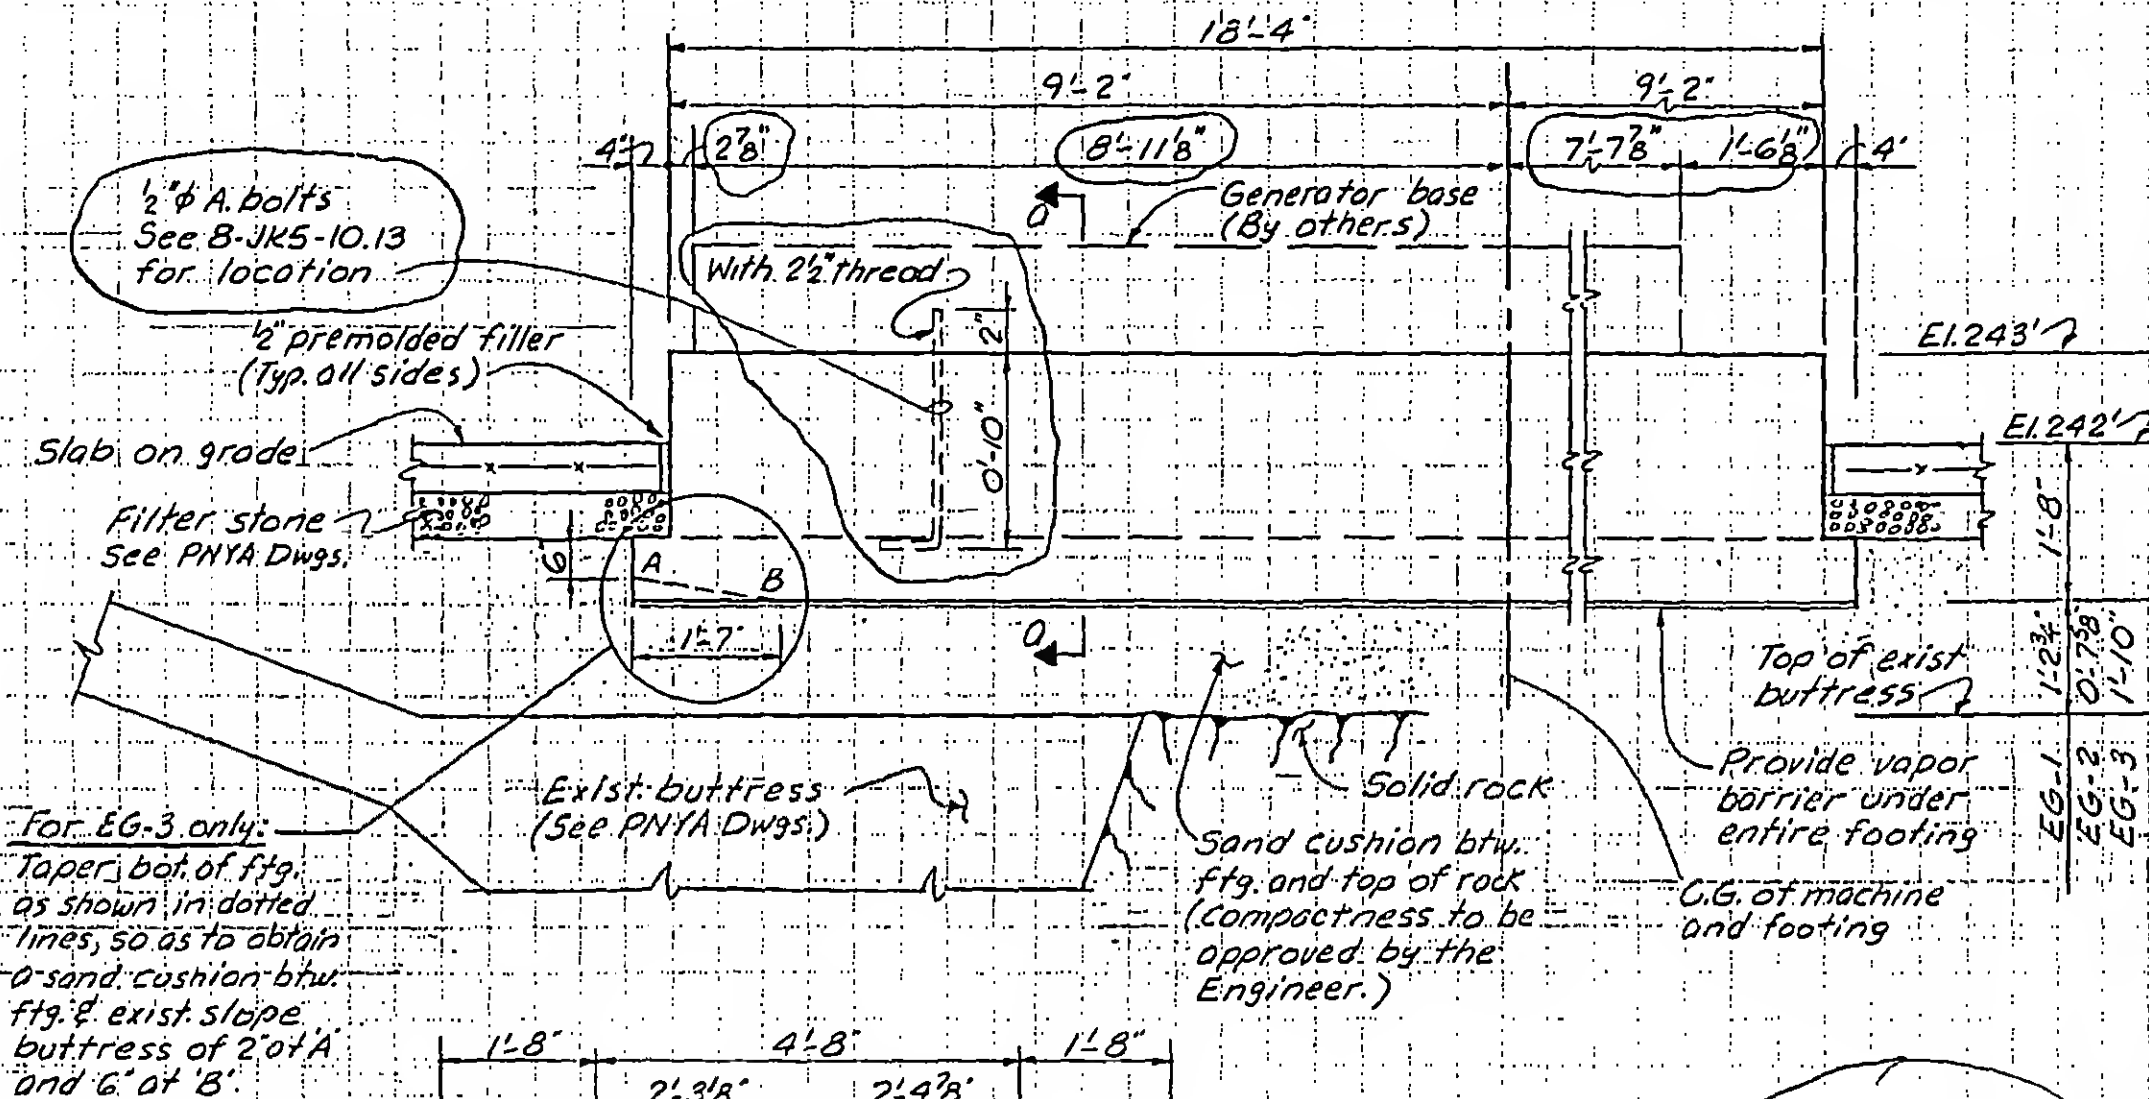 18'-4"
9'-2"
9'-2"
4"
2 7/8"
8'-11 1/8"
7'-7 7/8"
1'-6 1/8"
4"
1/2"φ A. bolts
See 8-JK5-10.13
for location
a
Generator base
(By others)
With 2 1/2" thread
2"
0'-10"
1/2" premolded filler
(Typ. all sides)
El. 243'
El. 242'
Slab on grade
Filter stone
See PNYA Dwgs.
6"
A
B
1'-7"
a
1'-8"
1'-2 3/4"
0'-7 5/8"
1'-10"
EG-1
EG-2
EG-3
Top of exist
buttress
Provide vapor
barrier under
entire footing
Exist. buttress
(See PNYA Dwgs.)
Solid rock
Sand cushion btw.
ftg. and top of rock
(Compactness to be
approved by the
Engineer.)
C.G. of machine
and footing
For EG-3 only:
Taper bot. of ftg.
as shown in dotted
lines, so as to obtain
a sand cushion btw.
ftg. & exist. slope
buttress of 2" at 'A'
and 6" at 'B'.
1'-8"
4'-8"
1'-8"
2'-3 1/8"
2'-4 7/8"